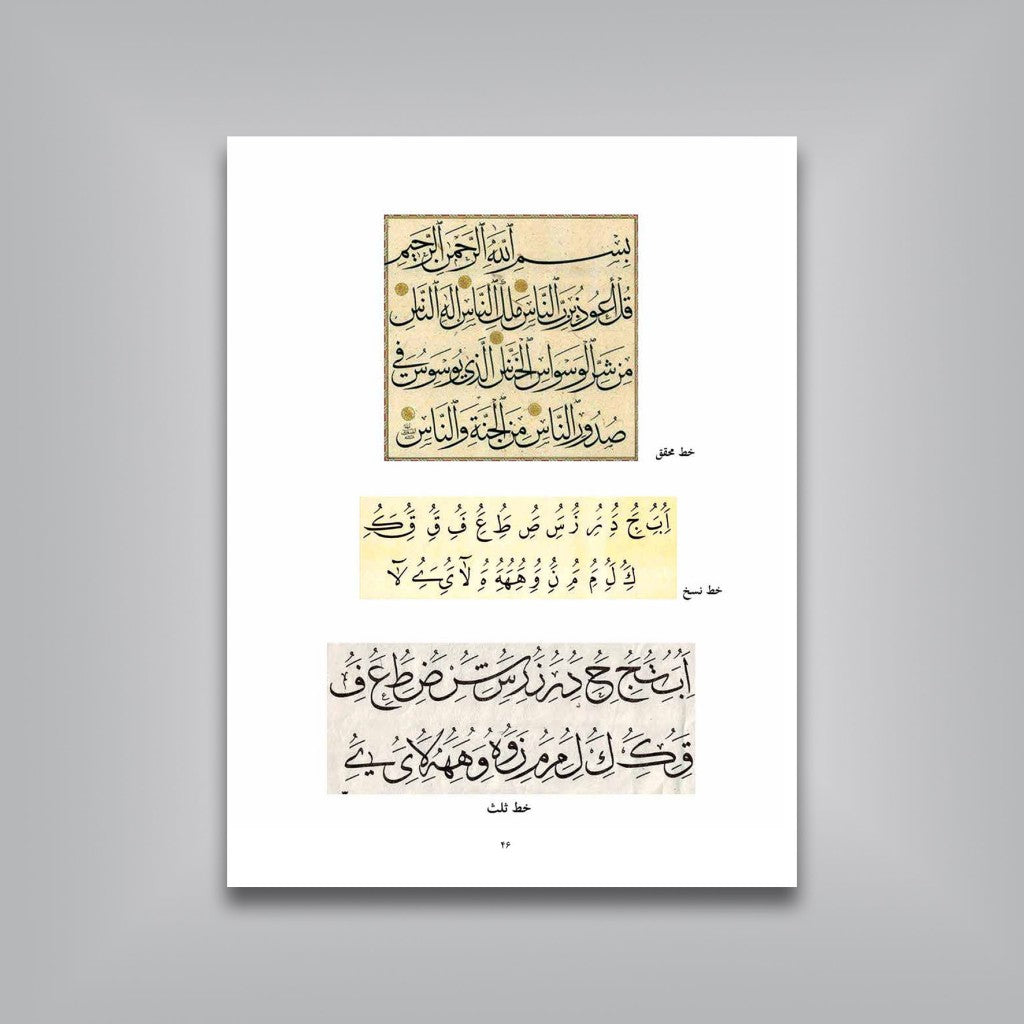 بِسْمِ ٱللَّهِ ٱلرَّحْمَٰنِ ٱلرَّحِيمِ
قُلْ أَعُوذُ بِرَبِّ ٱلنَّاسِ مَلِكِ ٱلنَّاسِ إِلَٰهِ ٱلنَّاسِ
مِن شَرِّ ٱلْوَسْوَاسِ ٱلْخَنَّاسِ ٱلَّذِي يُوَسْوِسُ فِي
صُدُورِ ٱلنَّاسِ مِنَ ٱلْجِنَّةِ وَٱلنَّاسِ
خط محقق
اُ بُ جُ دُ رُ زُ سُ صُ طُ عُ فُ قُ قُ كُ
كُ لُ مُ مُ نُ وُ هُ هُهُ هُ لا ىُ ے لا
خط نسخ
اُ بُ تُ جُ حُ دُ رُ زُ سُ ضُ طُ عُ فُ
قُ كُ كُ لُ مُ مُ وُ هُ وَ هُهُ لا ىُ
خط ثلث
۴۶